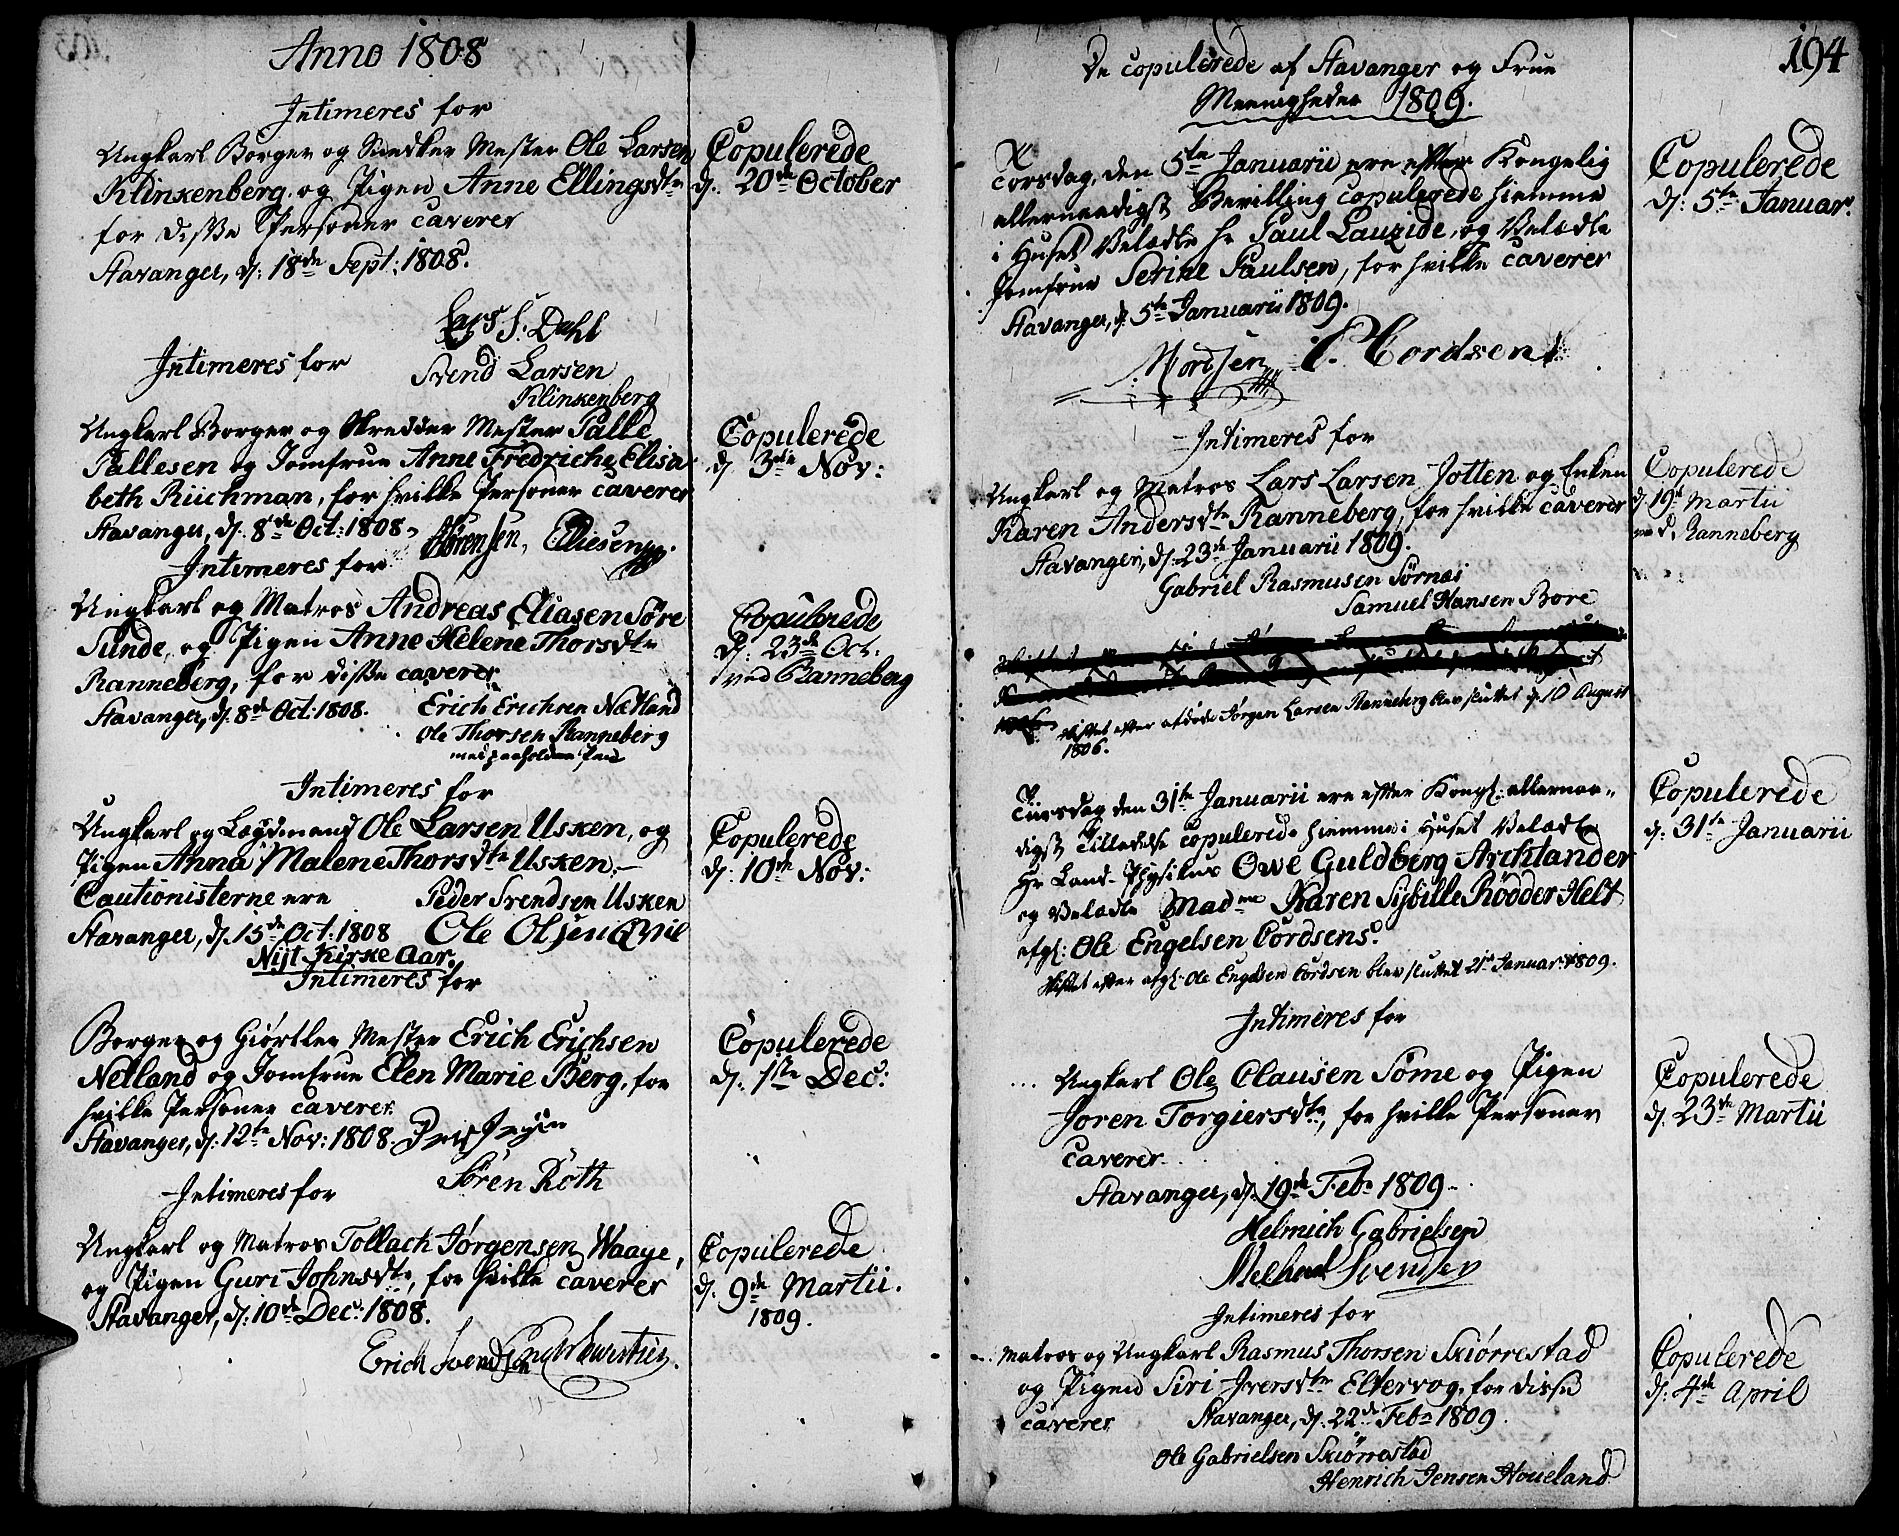 Anno 1808
Intimeres for
Ungkarl Borger og Snedker Mester Ole Larsen
Klinkenberg, og Pigen Anne Ellingsdtr
for disse Personer caverer
Stavanger, d: 18de Sept: 1808.
Copulerede
d: 20de October
Lars S. Dahl
Svend Larsen
Klinkenberg
Intimeres for
Ungkarl Borger og Skredder Mester Palle
Pallesen og Jomfrue Anne Fredriche Elisa
beth Riichman, for hvilke Personer caverer
Stavanger, d: 8de Oct: 1808.
Sørensen, Elliesen
Copulerede
d. 3die Nov:
Intimeres for
Ungkarl og Matros Andreas Eliasen Søre
Sunde, og Pigen Anne Helene Thorsdtr
Ranneberg, for disse caverer
Stavanger, d: 8de Oct: 1808.
Erich Erichsen Nætland
Ole Thorsen Ranneberg
med paaholden Pen
Copulerede
d: 23de Oct.
ved Ranneberg
Intimeres for
Ungkarl og Laugdmand Ole Larsen Usken, og
Pigen Anna Malene Thorsdtr Usken.
Cautionisterne ere
Peder Svendsen Usken
Stavanger, d. 15de Oct: 1808
Ole Olsen
Copulerede
d: 10de Nov:
Nyt Kirke Aar.
Intimeres for
Borger og Giørtler Mester Erich Erichsen
Netland og Jomfrue Elen Marie Berg, for
hvilke Personer caverer
Stavanger, d: 12te Nov: 1808.
Søren Roth
Copulerede
d: 1ste Dec:
Intimeres for
Ungkarl og Matros Tollach Jørgensen Waaye,
og Pigen Guri Johnsdtr, for hvilke caverer
Stavanger, d: 10de Dec: 1808.
Erich Svendsen
Copulerede
d: 9de Martii.
1809.
194
De copulerede af Stavanger og Frue
Meenigheder 1809.
Torsdag, den 5te Januarii ere efter Kongelig
allernaadigst Bevilling copulerede hiemme
i Huset Velædle Hr Paul Lauzide, og Velædle
Jomfrue Serine Paulsen, for hvilke caverer
Stavanger, d. 5te Januarii 1809.
Cordsen
Copulerede
d: 5te Januar.
Intimeres for
Ungkarl og Matros Lars Larsen Jotten og Enken
Karen Andersdtr Ranneberg, for hvilke caverer
Stavanger, d: 23de Januarii 1809.
Gabriel Rasmusen Sørnæs
Samuel Hansen Bore
Copulerede
d: 19de Martii
ved Ranneberg
Skiftet efter afdøde Jørgen Larsen Ranneberg blev sluttet d. 10 August
1806.
Tiirsdag den 31te Januarii ere efter Kongl: allernaa-
digst Tilladelse copulerede hiemme i Huset Velædle
Hr Land-Physikus Owe Guldberg Archtander
og Velædle Madme Karen Sybille Rødder Helt
afgl: Ole Engelsen Cordsens.
Skiftet efter afgl: Ole Engelsen Cordsen blev sluttet 21de Januar. 1809.
Copulerede
d: 31te Januarii
Intimeres for
Ungkarl Ole Clausen Sôme og Pigen
Joren Torgiersdtr, for hvilke Personer
caverer
Stavanger, d: 19de Febr 1809
Helmich Gabrielsen
Michael Svendsen
Copulerede
d: 23de Martii
Intimeres for
Matros og Ungkarl Rasmus Thorsen Skiørrestad
og Pigen Siri Iversdtr Eltervog, for disse
caverer
Stavanger, d. 22de Febr 1809.
Ole Gabrielsen Skiørrestad
Henrich Jensen Houeland
Copulerede
d: 4de April